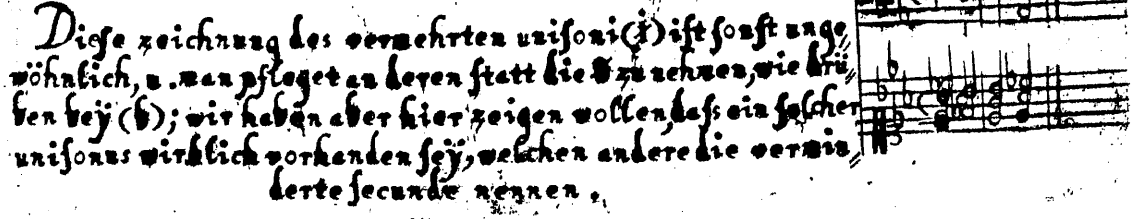 Dieſe zeichnung des vermehrten uniſoni (i) iſt ſonſt unge⸗
wöhnlich, u. man pfleget an deren ſtatt die zu nehmen, wie drü⸗
ben beÿ (b); wir haben aber hier zeigen wollen, daſs ein ſolcher
uniſonus wirklich vorhanden ſeÿ, welchen andere die vermin⸗
derte ſecunde nennen.